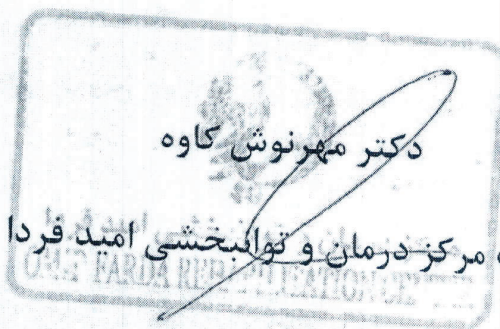 دکتر مهرنوش کاوه
مرکز درمان و توانبخشی امید فردا
FARDA REHABILITATION